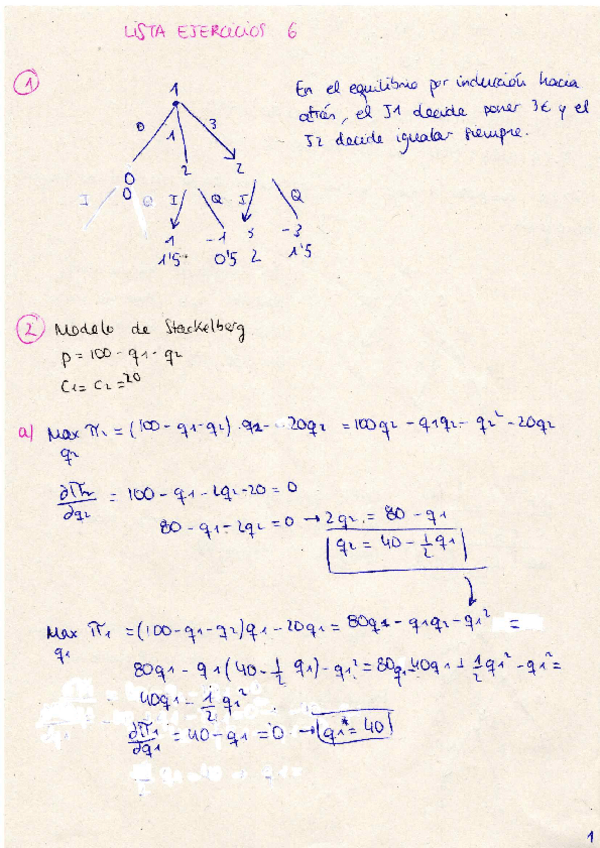 LISTA EJERCICIOS 6
1
En el equilibrio por inducción hacia
atrás, el J1 decide poner 3€ y el
J2 decide igualar siempre.
1
0 1 3
0 2 2
0
I Q I Q I Q
1 -1 3 -3
1'5 0'5 2 1'5
2 Modelo de Stackelberg
p = 100 - q1 - q2
C1 = C2 = 20
a) Max π2 = (100 - q1 - q2) · q2 - 20q2 = 100q2 - q1q2 - q2² - 20q2
q2
∂π2/∂q2 = 100 - q1 - 2q2 - 20 = 0
80 - q1 - 2q2 = 0 → 2q2 = 80 - q1
q2 = 40 - 1/2 q1
Max π1 = (100 - q1 - q2) q1 - 20q1 = 80q1 - q1q2 - q1² =
q1
80q1 - q1 (40 - 1/2 q1) - q1² = 80q1 - 40q1 + 1/2 q1² - q1² =
40q1 - 1/2 q1²
∂π1/∂q1 = 40 - q1 = 0 → q1* = 40
1